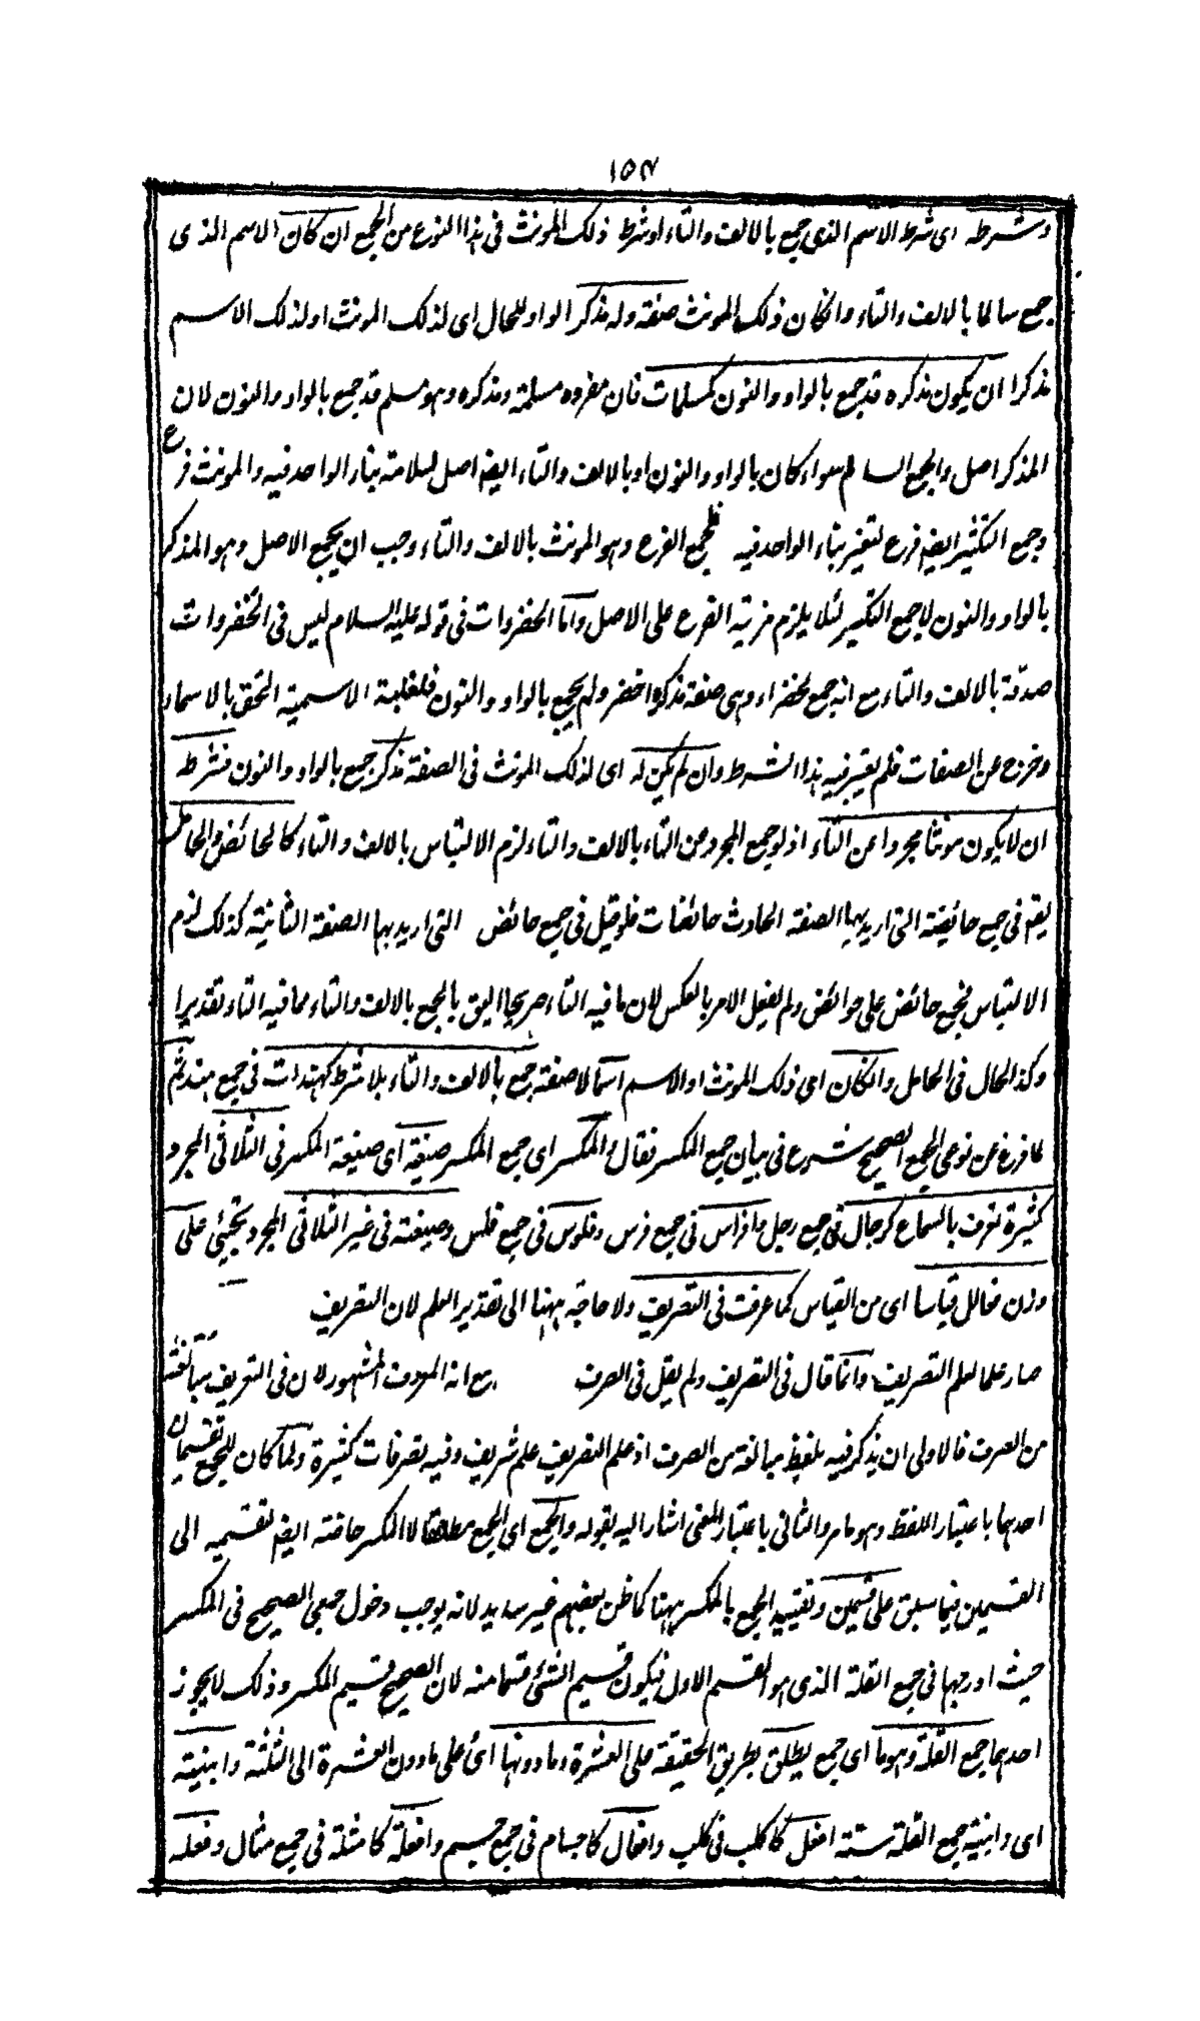 ١٥٧
وشرطه اى شرط الاسم الذى جمع بالالف والتاء اوشرط ذلك المونث فى هذا النوع من الجمع ان كان الاسم الذى
جمع سالما بالالف والتاء وانكان ذلك المونث صفة وله مذكر الواو للحال اى لذلك المونث اولذلك الاسم
مذكرا ان يكون مذكره قد جمع بالواو والنون كمسلمات فان مفرده مسلمة ومذكره وهو مسلم قد جمع بالواو والنون لان
المذكر اصل والجمع السالم سواء كان بالواو والنون او بالالف والتاء ايضا اصل لسلامة بناء الواحد فيه والمونث فرع
وجمع التكثير ايضا فرع لتغير بناء الواحد فيه فلجمع الفرع وهو المونث بالالف والتاء وجب ان يجمع الاصل وهو المذكر
بالواو والنون لا جمع التكسير لئلا يلزم مزية الفرع على الاصل واما الخضروات فى قوله عليه السلام ليس فى الخضروات
صدقة بالالف والتاء مع انه جمع لخضراء وهى صفة مذكرها اخضر ولم يجمع بالواو والنون فلغلبة الاسمية التحق بالاسماء
وخرج عن الصفات فلم يعتبر فيه هذا الشرط وان لم يكن له اى لذلك المونث فى الصفة مذكر جمع بالواو والنون فشرطه
ان لا يكون مونثا مجردا عن التاء اذ لو جمع المجرد من التاء بالالف والتاء لزم الالتباس بالالف والتاء كالحائض والحامل
يقم فى جمع حائضة التى اريد بها الصفة الحادث حائضات فلو قيل فى جمع حائض التى اريد بها الصفة الثانية كذلك لزم
الالتباس فجمع حائض على حوائض ولم يفعل الامر بالعكس لان ما فيه التاء صريحا اليق بالجمع بالالف والتاء مما فيه التاء تقديرا
وكذ الحال فى الحامل وانكان اى ذلك المونث او الاسم اسما لا صفة جمع بالالف والتاء بلا شرط كهندات فى جمع هند ثم
لما فرغ عن نوعى الجمع الصحيح شرع فى بيان جمع المكسر فقال والمكسر اى جمع المكسر صيغة اى صيغة المكسر فى الثلاثى المجرد
كثيرة تعرف بالسماع كرجال فى جمع رجل وافراس فى جمع فرس وفلوس فى جمع فلس وصيغته فى غير الثلاثى المجرد يجيئ على
وزن فعالل قياسا اى من القياس كما عرفت فى التصريف ولا حاجة ههنا الى تقدير العلم لان التصريف
صار علما لعلم التصريف وانما قال فى التصريف ولم يقل فى الصرف مع انه المعروف المشهور لان فى التعريف مبالغة
من الصرف فالاولى ان يذكر فيه بلفظ مبالغة من الصرف اذ علم التصريف علم شريف وفيه تصرفات كثيرة ولما كان للجمع تقسيمان
احدهما باعتبار اللفظ وهو ما مر والثانى باعتبار المعنى اشار اليه بقوله والجمع اى الجمع مطلقا لا المكسر خاصة ايضا تقسيمه الى
القسمين فيما سبق على قسمين وتقييد الجمع بالمكسر ههنا كما ظن بعضهم غير سديد لانه يوجب دخول جمعى الصحيح فى المكسر
حيث اورد هما فى جمع القلة الذى هو القسم الاول فيكون قسيم الشئ قسما منه لان الصحيح قسيم المكسر وذلك لا يجوز
احدهما جمع القلة وهو ما اى جمع يطلق بطريق الحقيقة على العشرة وما دونها اى على ما دون العشرة الى الثلثة وابنيته
اى وابنية جمع القلة ستة افعل كاكلب فى كلب وافعال كاجسام فى جمع جسيم وافعلة كامثلة فى جمع مثال وفعلة